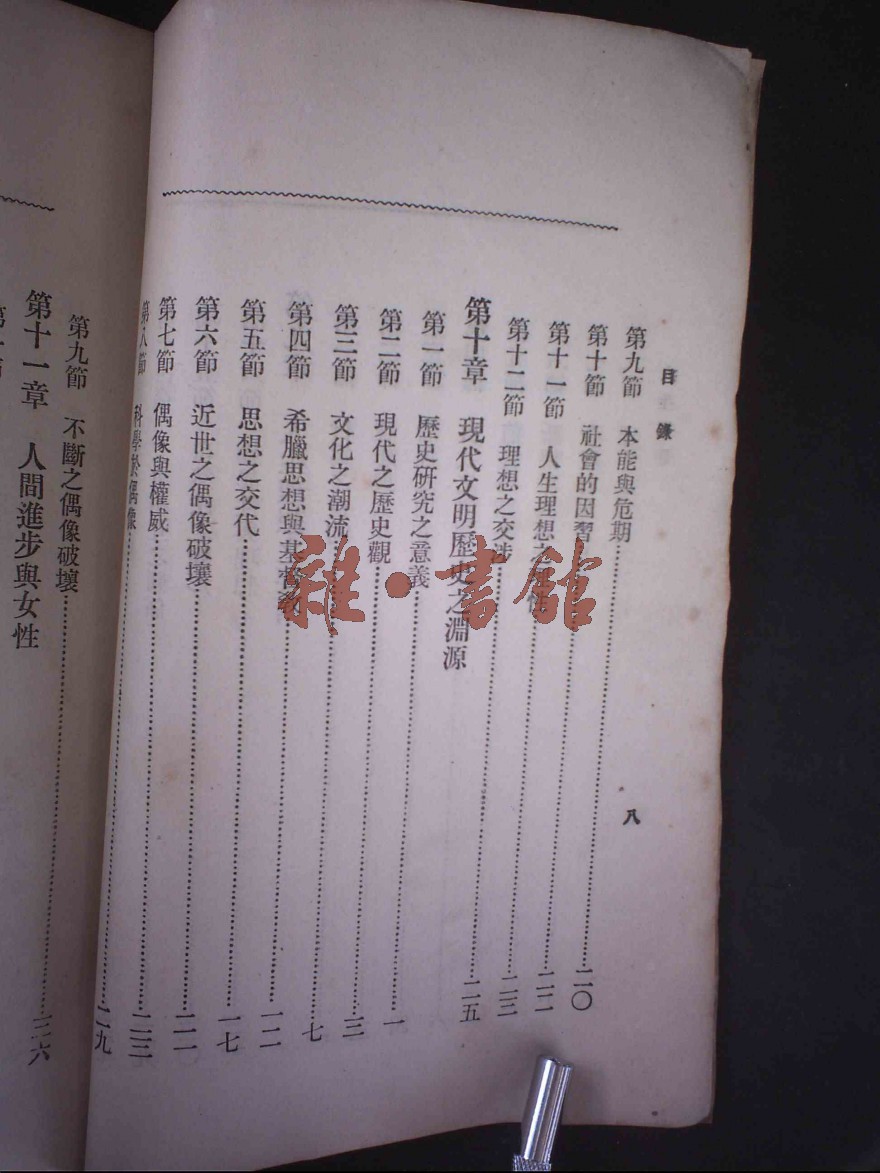 目錄
八
第九節 本能與危期 二〇
第十節 社會的因習 二二
第十一節 人生理想之 二三
第十二節 理想之交涉 二五
第十章 現代文明歷史之淵源
第一節 歷史研究之意義 一
第二節 現代之歷史觀 三
第三節 文化之潮流 七
第四節 希臘思想與基督教 一二
第五節 思想之交代 一七
第六節 近世之偶像破壞 二一
第七節 偶像與權威 二三
第八節 科學於偶像 二九
第九節 不斷之偶像破壞 三六
第十一章 人間進步與女性
雜·書館